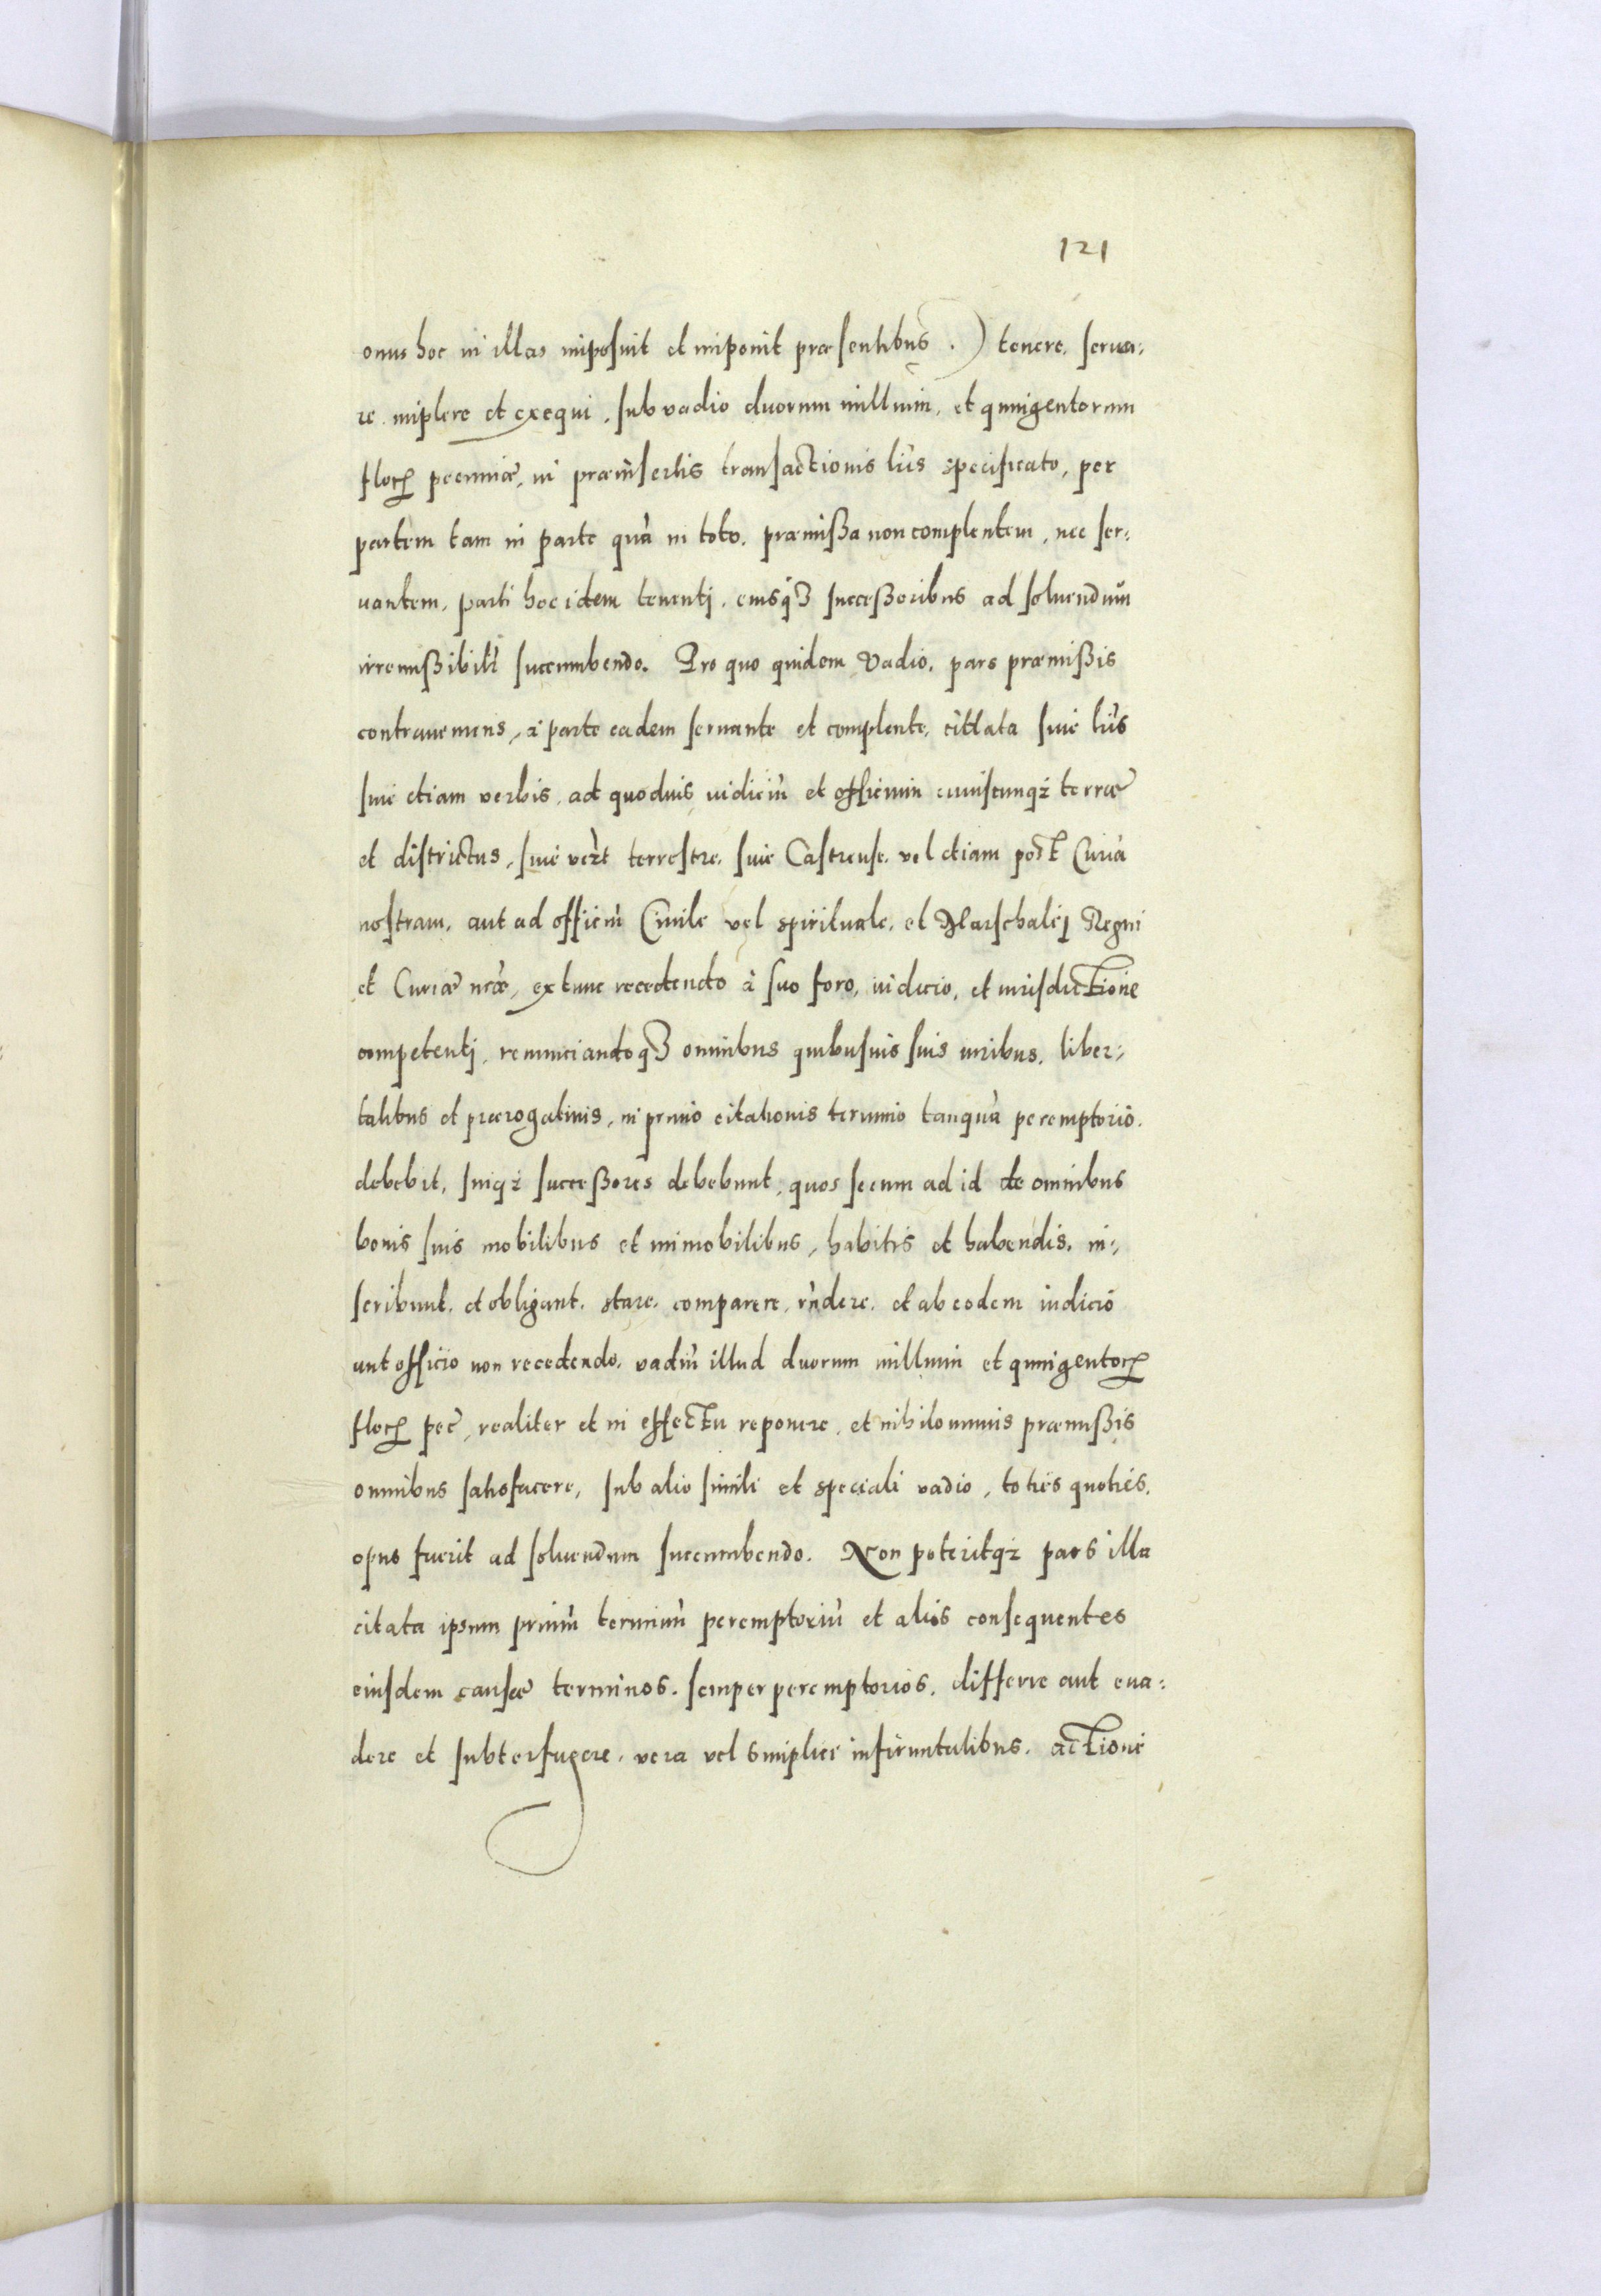 121
onus hoc in illas imposuit et imponit præsentibus.) tenere, serua-
re implere et exequi, sub vadio duorum millium, et quingentorum
floꝝ pecuniæ, in præinsertis transactionis lr̃is specificato, per
partem tam in parte quã in toto, præmissa non complentem, nec ser-
uantem, parti hoc idem tenentj, eiusqꝫ successoribus ad soluendũ
irremissibilr̃ succumbendo. Pro quo quidem Vadio, pars præmissis
contraueniens, à parte eadem seruante et complente, citata siue lr̃is
siue etiam verbis, ad quoduis iudiciũ et officium cuiuscunqꝫ terræ
et districtus, siue vezt terrestre, siue Castrense, vel etiam post Curiã
nostram, aut ad officiũ Ciuile vel spirituale, et Marschalcj Regni
et Curiæ nr̃æ, ex tunc recedendo à suo foro, iudicio, et iurisdictione
competentj, renunciandoqꝫ omnibus quibusuis suis iuribus, liber-
tatibus et prærogatiuis, in primo citationis termino tanquã peremptorio.
debebit, suiqꝫ successores debebunt, quos secum ad id de omnibus
bonis suis mobilibus et immobilibus, habitis et habendis, in-
scribunt, et obligant, stare, comparere, rñdere, et ab eodem iudicio
aut officio non recedendo, vadiũ illud duorum millium et quingentoꝝ
floꝝ pec̃, realiter et in effectu reponere, et nihilominus præmissis
omnibus satisfacere, sub alio simili et speciali vadio, toties quoties,
opus fuerit ad soluendum succumbendo. Non poteritqꝫ pars illa
citata ipsum primũ terminũ peremptoriũ et alios consequentes
eiusdem causæ terminos, semper peremptorios, differre aut eua-
dere et subterfugere, vera vel simplici infirmitatibus, actione